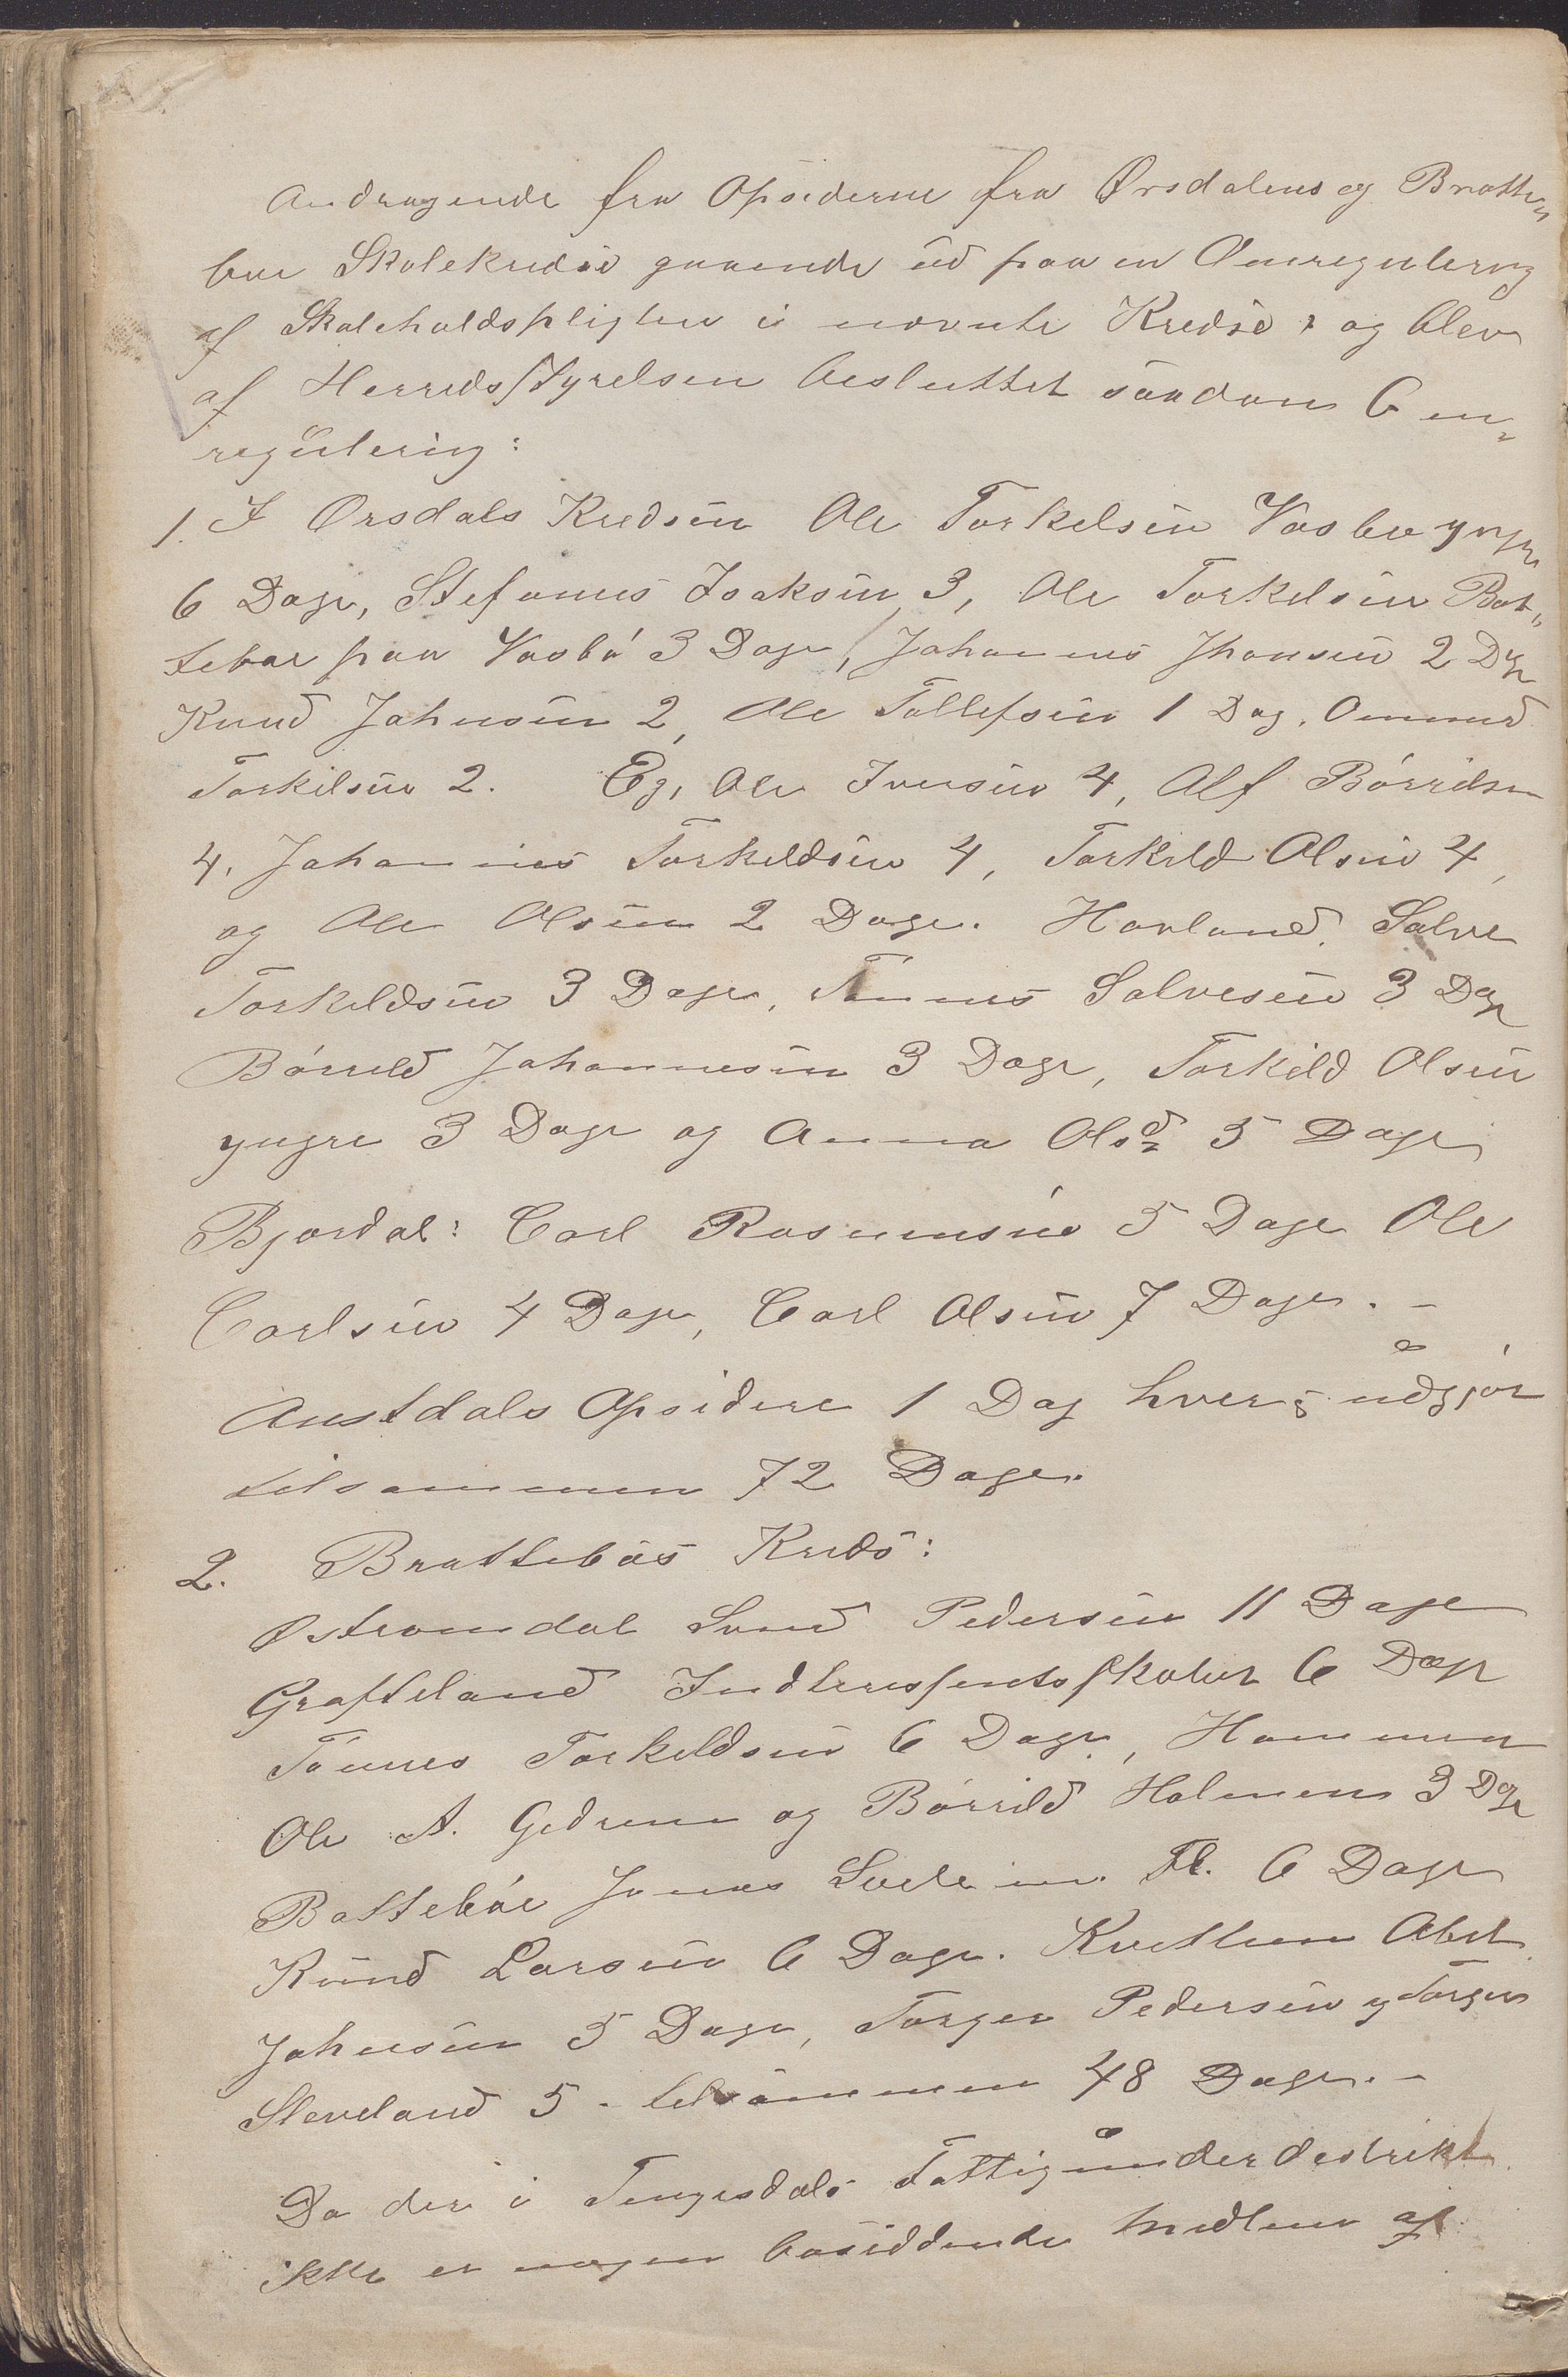 Andragende fra Opsiderne fra Ørsdalens og Bratte„
bøe Skolekredse gaaende ud paa en Omregulering
af Skoleholdspligten i nævnte Kredse, og blev
af Herredsstyrelsen besluttet saadan Om„
regulering:
1. I Ørsdals Kredsen Ole Torkelsen Vasbø yngre
6 Dage, Stefanus Isaksen 3, Ole Torkelsen Bat„
tebøe paa Vasbø 3 Dage, Johannes Jhonsen 2 Dge
Knud Johnsen 2, Ole Tollefsen 1 Dag, Ommund
Torkilsen 2. Eg, Ole Iversen 4, Alf Børrildsen
4, Johannes Torkeldsen 4, Torkild Olsen 4,
og Ole Olsen 2 Dage. Hovland. Salve
Torkildsen 3 Dage, Tønnes Salvesen 3 Dage
Børrild Johannesen 3 Dage, Torkild Olsen
yngre 3 Dage og Anna Olsd 5 Dage
Bjordal: Carl Rasmusen 5 Dage Ole
Carlsen 4 Dage, Carl Olsen 7 Dage. –
Austdals Opsidere 1 Dag hver; udgjør
tilsammen 72 Dage.
2. Brattebøs Kreds:
Østromdal Svend Pedersen 11 Dage
Grafteland 6 Dage
Tønnes Torkildsen 6 Dage, Hammren
Ole A. Gedrem og Børrild Holmen 3 Dage
Battebøe Jonas m. Fl. 6 Dage
Knud Larsen 6 Dage. Kvitlen Abel
Johnsen 5 Dage, Torger Pedersen og Torger
Sleveland 5 - tilsammen 48 Dage. –
Da der i Tengesdals Fattigunderdistrikt
ikke er nogen bosiddende Medlem af